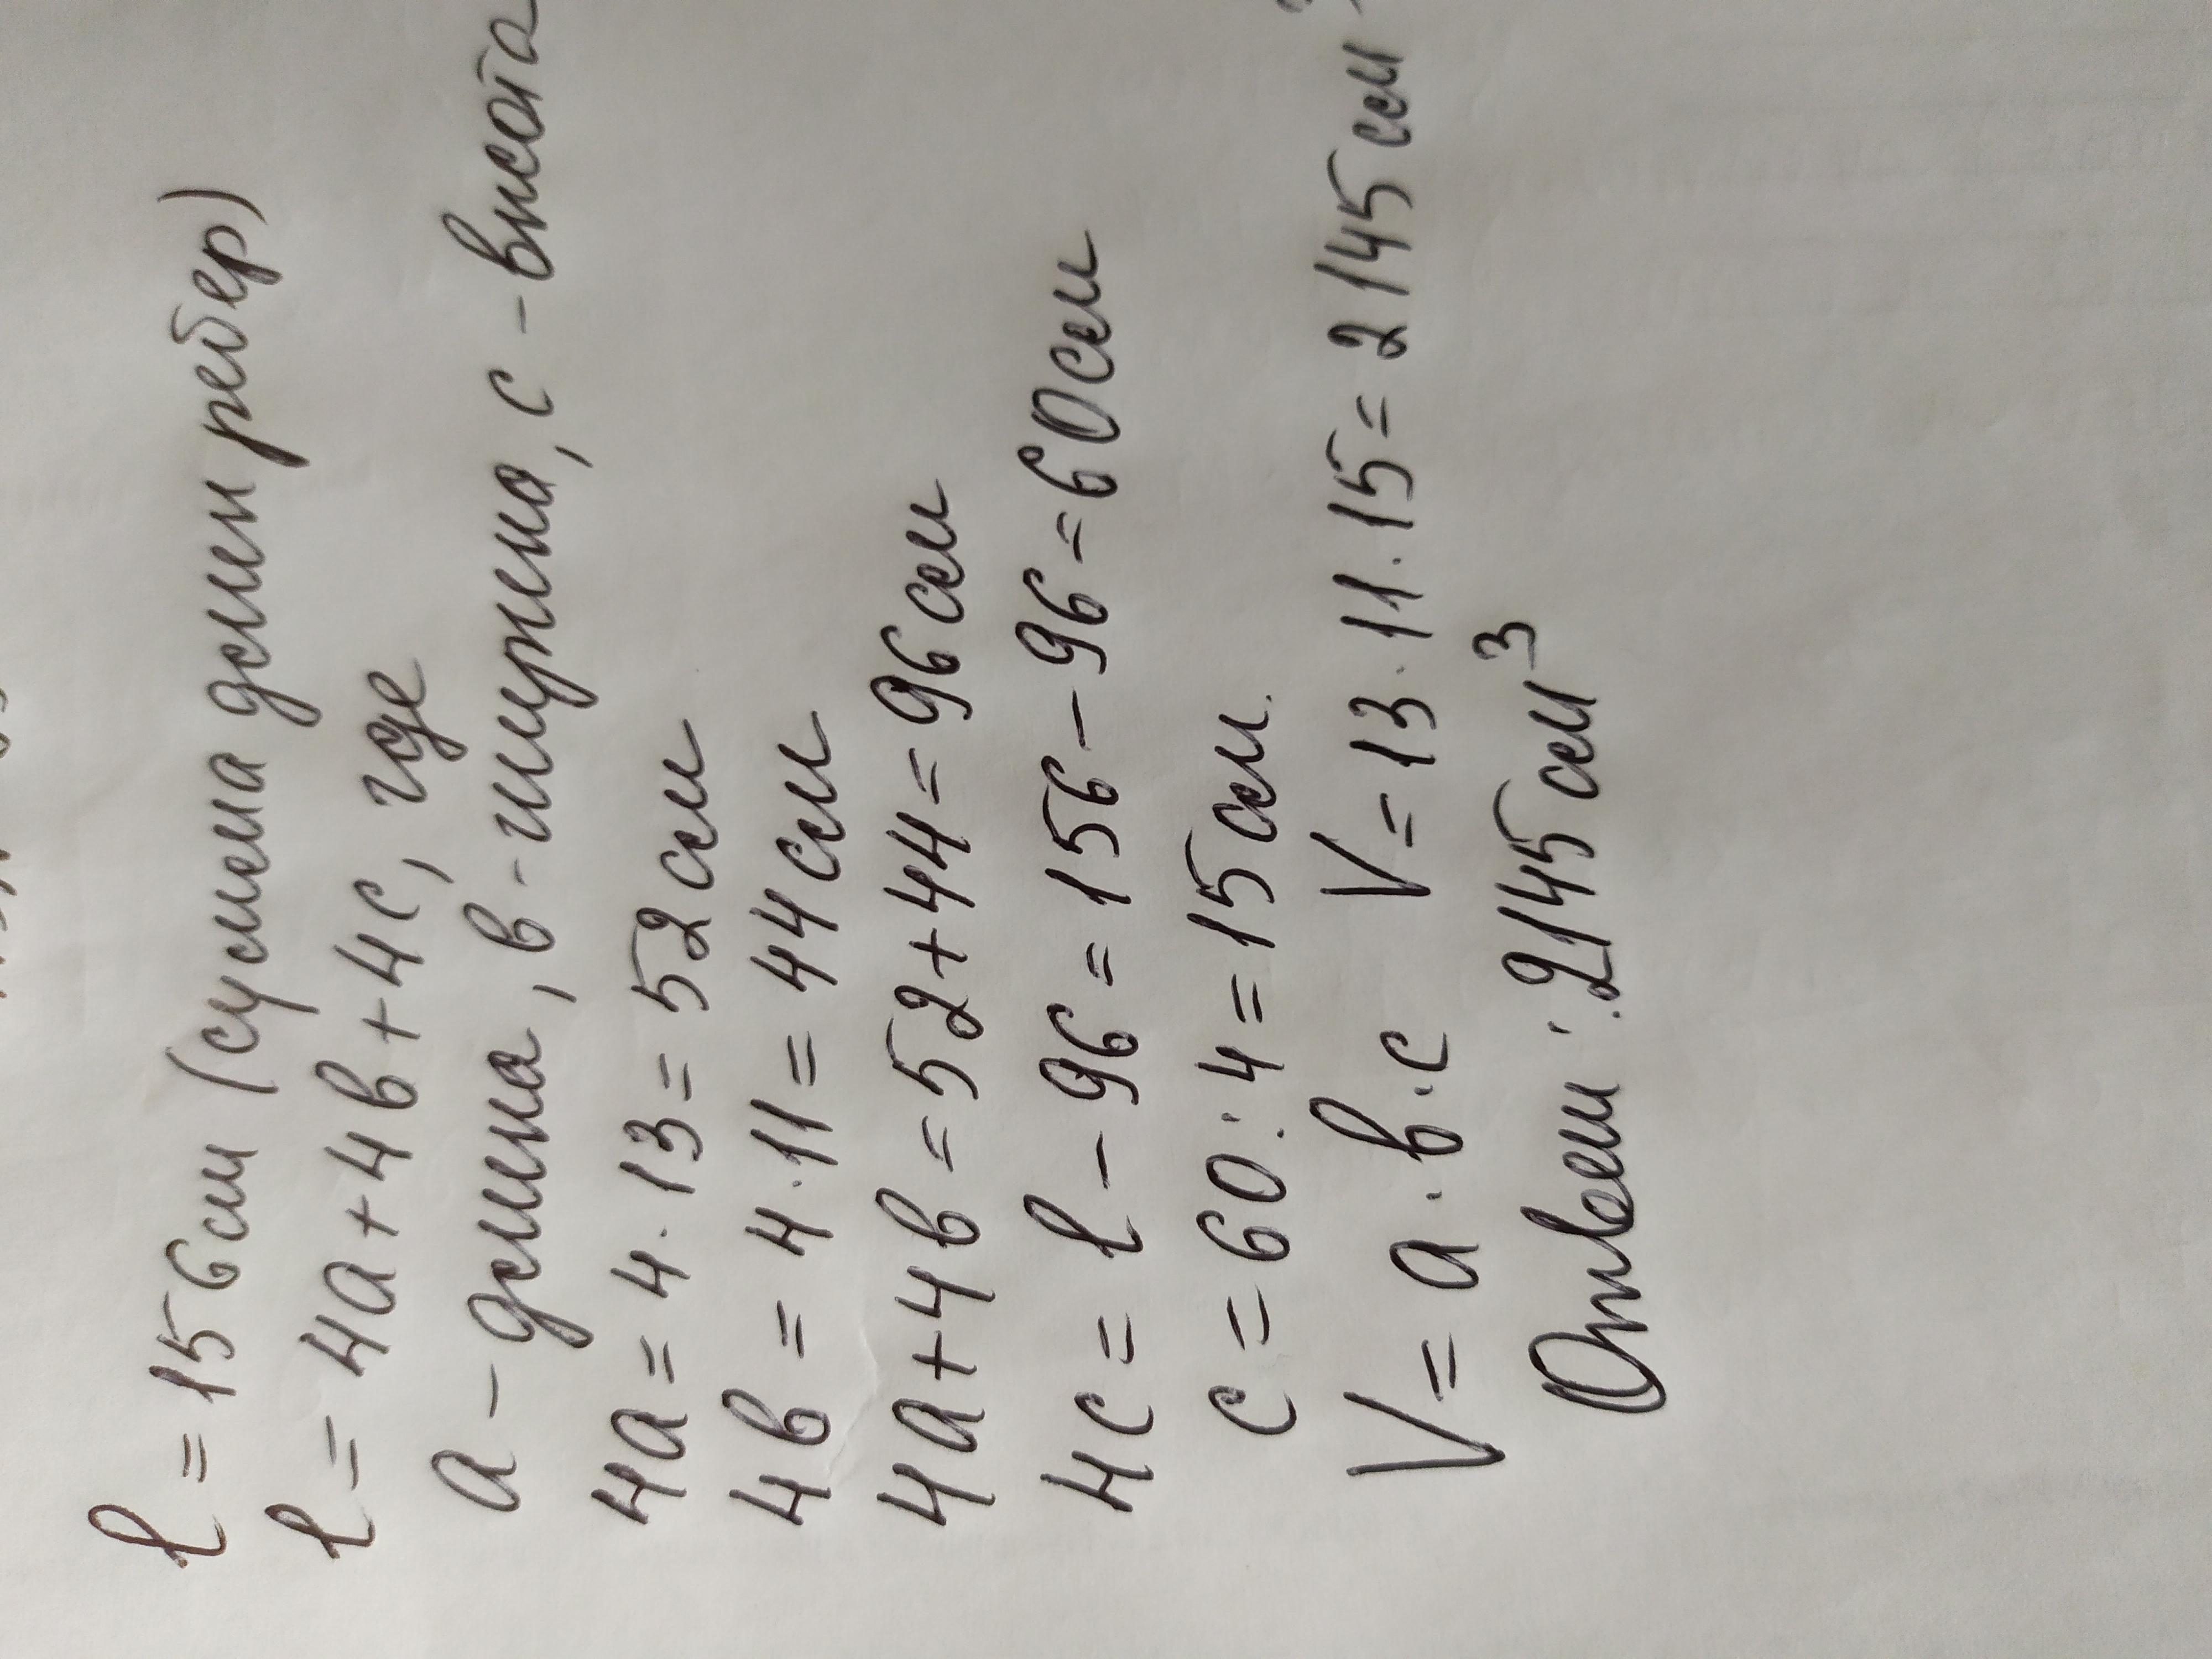 l = 156 см (сумма длин ребер)
l = 4а + 4в + 4с, где
а - длина, в - ширина, с - высота
4а = 4 · 13 = 52 см
4в = 4 · 11 = 44 см
4а + 4в = 52 + 44 = 96 см
4с = l - 96 = 156 - 96 = 60 см
с = 60 : 4 = 15 см.
V = а · в · с V = 13 · 11 · 15 = 2145 см³
Ответ: 2145 см³